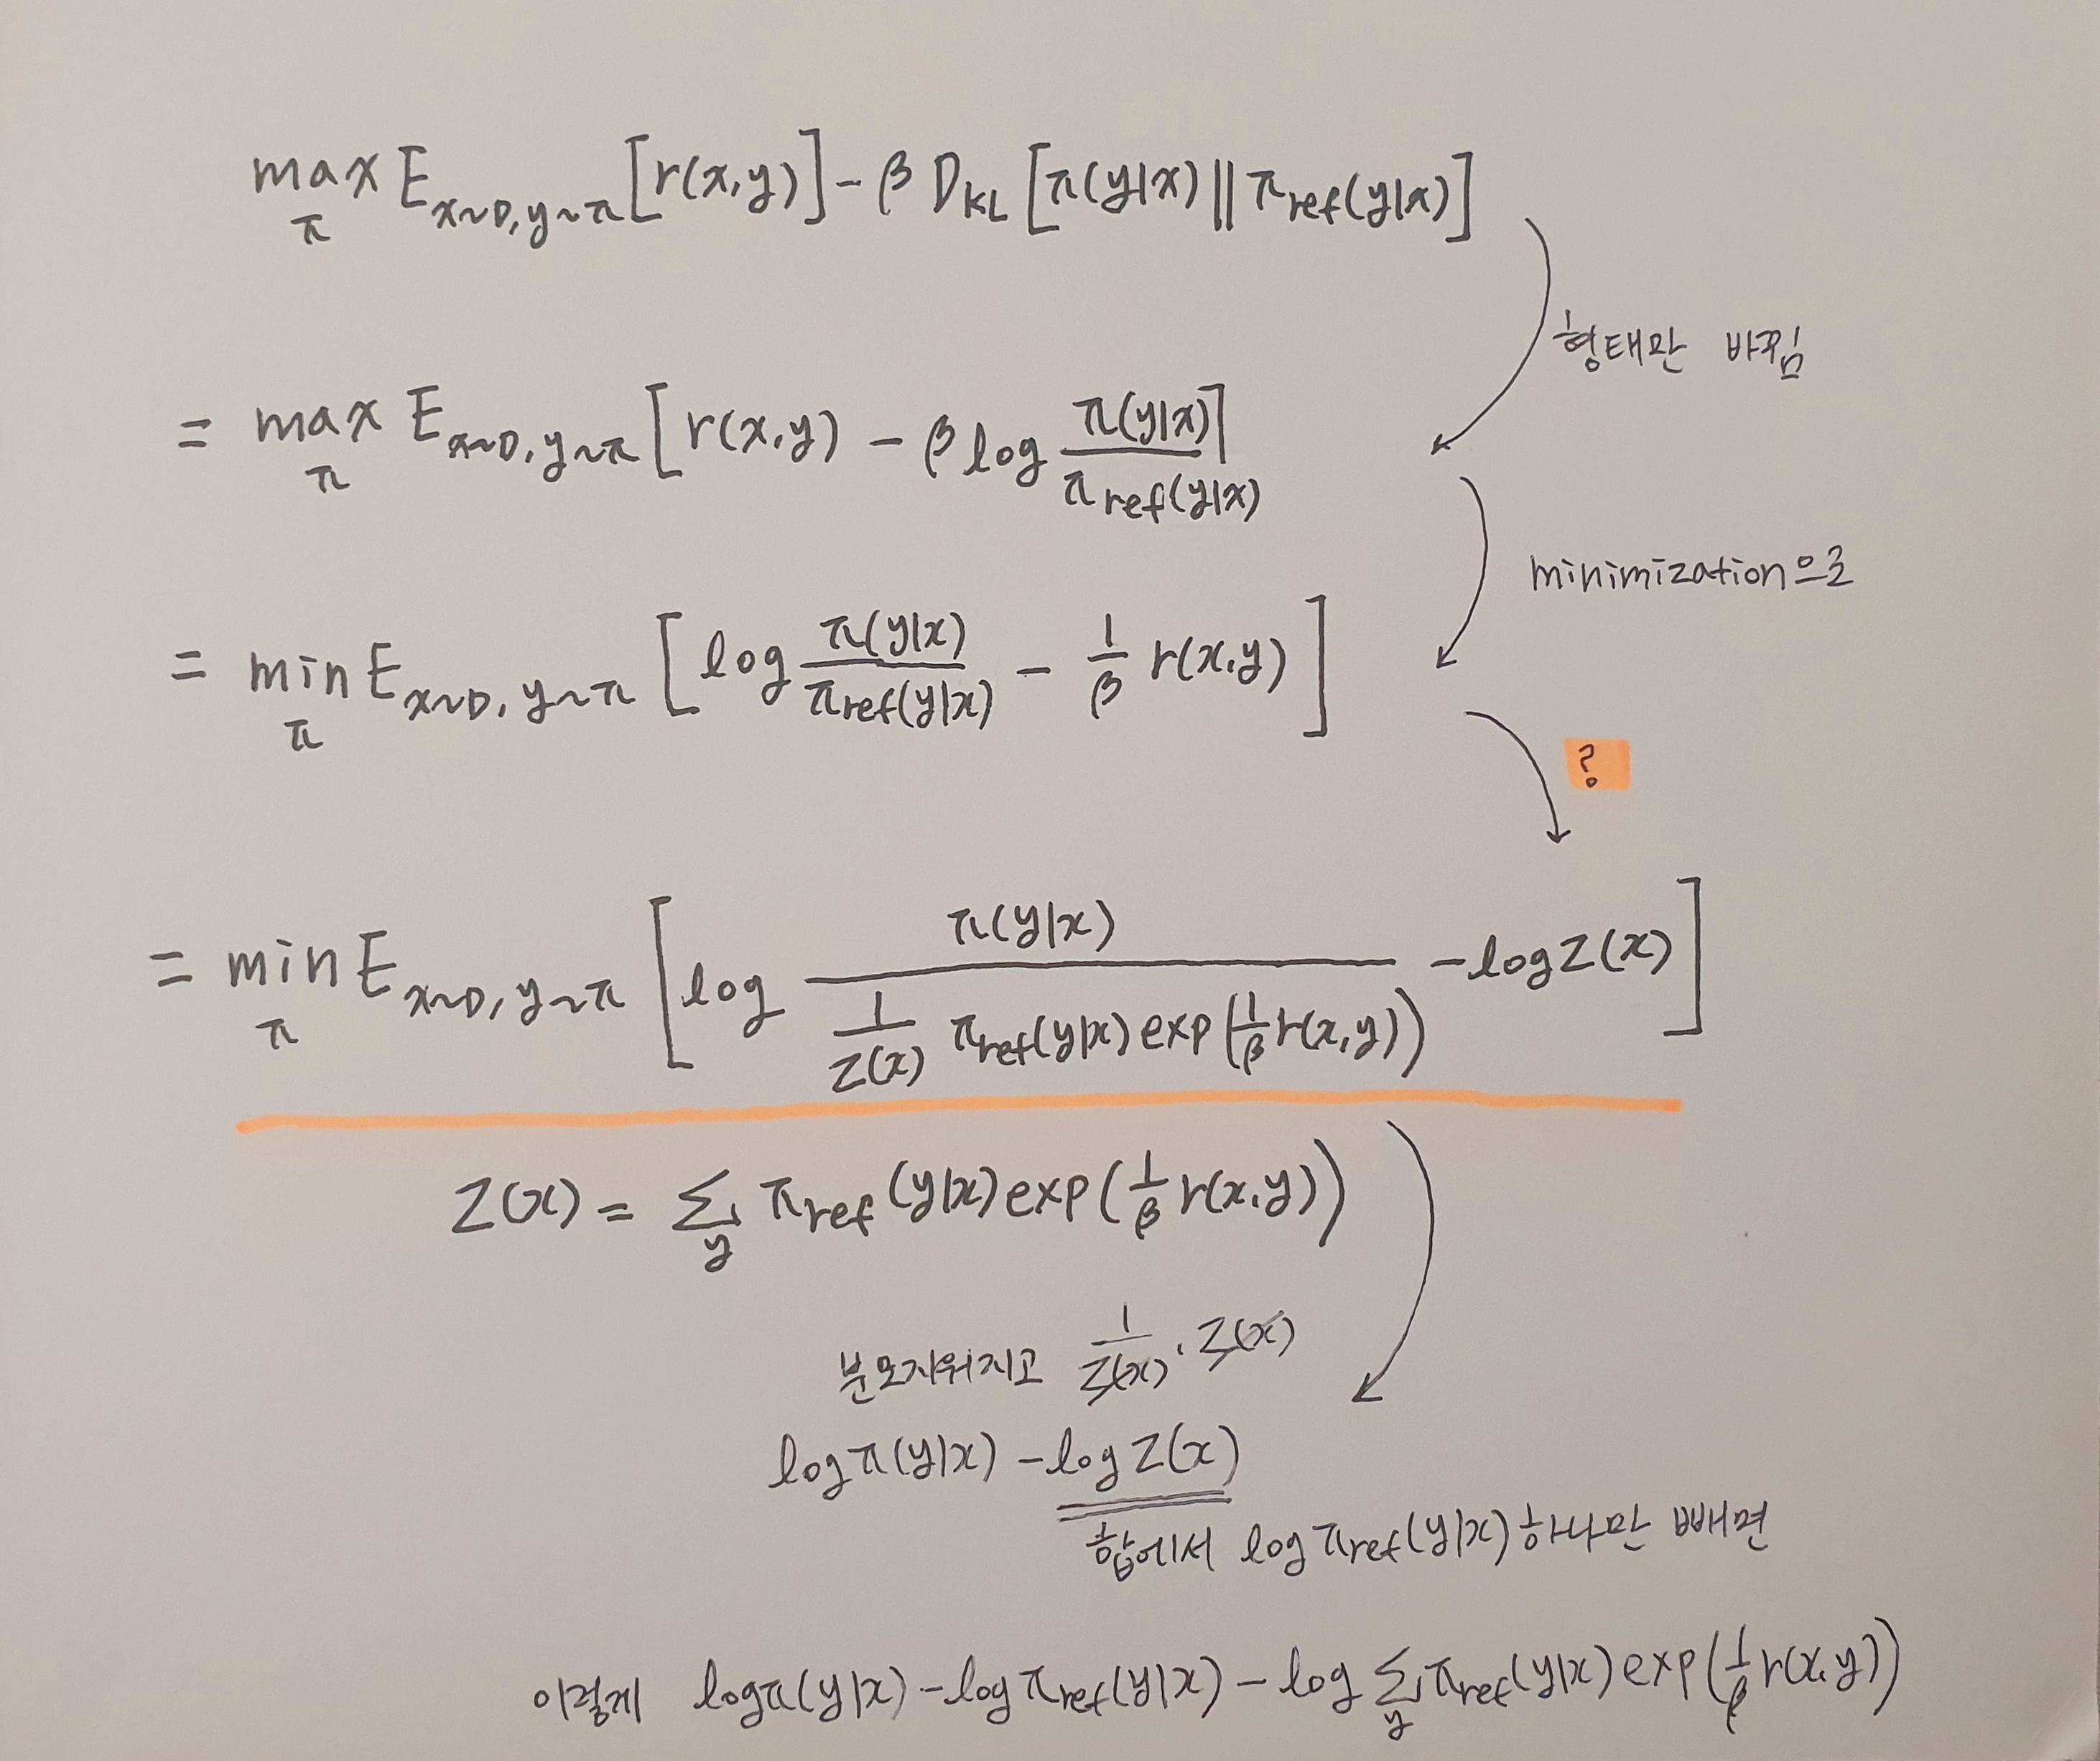 max_π E_{x~D, y~π} [r(x,y)] - β D_KL [π(y|x) || π_ref(y|x)]
형태만 바뀜
= max_π E_{x~D, y~π} [r(x,y) - β log π(y|x) / π_ref(y|x)]
minimization으로
= min_π E_{x~D, y~π} [log π(y|x) / π_ref(y|x) - 1/β r(x,y)]
?
= min_π E_{x~D, y~π} [log π(y|x) / (1/Z(x) π_ref(y|x) exp(1/β r(x,y))) - log Z(x)]
Z(x) = Σ_y π_ref(y|x) exp(1/β r(x,y))
분모지워지고 1/Z(x) · Z(x)
log π(y|x) - log Z(x)
합에서 log π_ref(y|x) 하나만 빼면
이렇게 log π(y|x) - log π_ref(y|x) - log Σ_y π_ref(y|x) exp(1/β r(x,y))